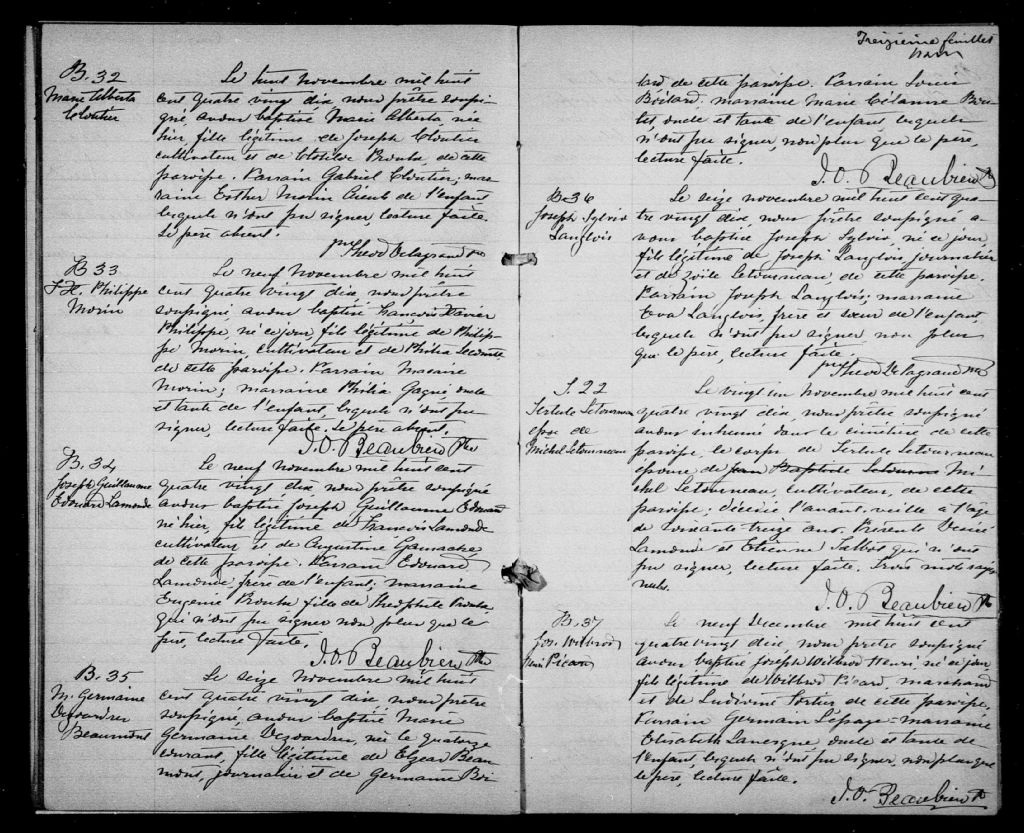 B. 32
Marie Alberta
Cloutier
Le huit novembre mil huit
cent quatre vingt dix nous prêtre soussi-
gné avons baptisé Marie Alberta, née
hier, fille légitime de Joseph Cloutier
cultivateur et de Clotilde Proulx, de cette
paroisse. Parrain Gabriel Cloutier; mar-
raine Esther Morin aïeuls de l'enfant
lesquels n'ont pu signer, lecture faite.
Le père absent.
Theod Delagrave ptre
B 33
F. X. Philippe
Morin
Le neuf novembre mil huit
cent quatre vingt dix nous prêtre
soussigné, avons baptisé François Xavier
Philippe, né ce jour, fils légitime de Philip-
pe Morin, cultivateur et de Philia Lecomte
de cette paroisse. Parrain Macaire
Morin; marraine Philia Gagné, oncle
et tante de l'enfant, lesquels n'ont pu
signer, lecture faite. Le père absent.
J. O. Beaubien Ptre
B. 34
Joseph Guillaume
Edouard Lamonde
Le neuf novembre mil huit cent
quatre vingt dix, nous prêtre soussigné
avons baptisé Joseph Guillaume Edouard
né hier, fils légitime de François Lamonde
cultivateur et de Augustine Gamache
de cette paroisse. Parrain Edouard
Lamonde, frère de l'enfant; marraine
Eugenie Proulx fille de Théophile Proulx
qui n'ont pu signer non plus que le
père, lecture faite.
J. O. Beaubien Ptre
B. 35
M. Germaine
Desjardins
Beaumont
Le seize novembre mil huit
cent quatre vingt dix nous prêtre
soussigné, avons baptisé Marie
Germaine Desjardins, née le quatorze
courant, fille légitime de Elzear Beau
mont, journalier et de Germaine Boi-
Treizième feuillet
lard de cette paroisse. Parrain Louis
Boilard, marraine Marie Célanire
oncle et tante de l'enfant lesquels
n'ont pu signer, non plus que le père,
lecture faite.
J. O. Beaubien Ptre
B. 36
Joseph Sylvio
Langlois
Le seize novembre mil huit cent qua-
tre vingt dix nous prêtre soussigné a-
vons baptisé Joseph Sylvio, né ce jour,
fils légitime de Joseph Langlois, journalier
et de Zoïle Letourneau, de cette paroisse.
Parrain Joseph Langlois; marraine
Eva Langlois, frère et sœur de l'enfant,
lesquels n'ont pu signer non plus
que le père, lecture faite.
Theod Delagrave ptre
S. 22
Letourneau
épse de
Michel Letourneau
Le vingt un novembre mil huit cent
quatre vingt dix nous prêtre soussigné
avons inhumé dans le cimétière de cette
paroisse, le corps de Letourneau
épouse de Jean Baptiste Letourneau Mi-
chel Letourneau, cultivateur, de cette
paroisse; décédée l'avant-veille à l'âge
de soixante treize ans. Présents
Lamonde et Etienne Talbot qui n'ont
pu signer, lecture faite. Trois mots rayés
nuls.
J. O. Beaubien Ptre
B. 37
Jos. Wilbrod
Henri Picard
Le neuf decembre mil huit cent
quatre vingt dix, nous prêtre soussigné
avons baptisé Joseph Wilbrod Henri, né ce jour
fils légitime de Wilbrod Picard, marchand
et de Ludivine Fortier de cette paroisse.
Parrain Germain Lepage - marraine
Elisabeth Lavergne oncle et tante de
l'enfant, lesquels n'ont pu signer, non plus que
le père, lecture faite.
J. O. Beaubien Ptre